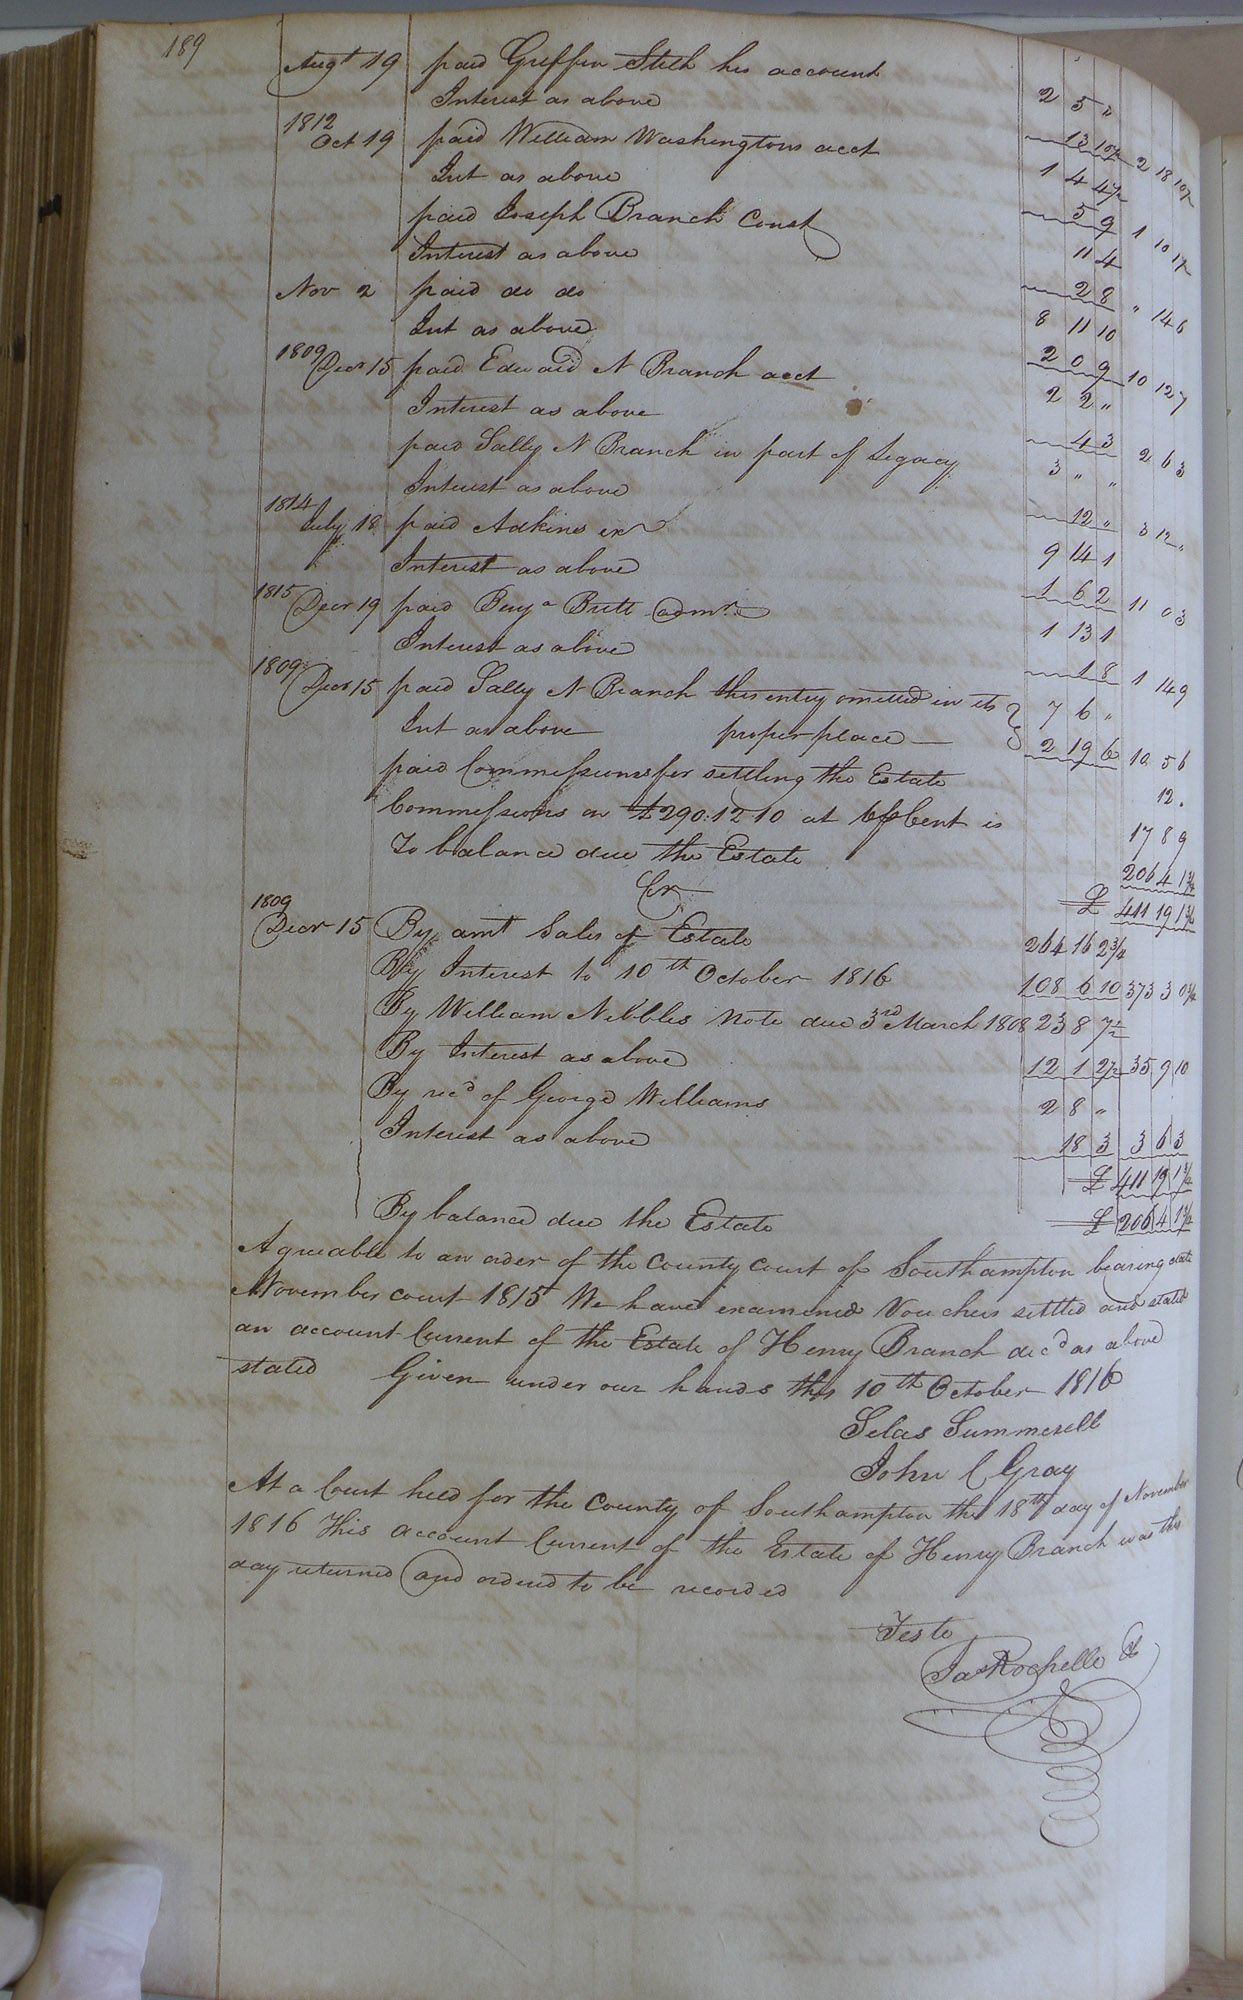 189
Augt 19 paid Griffin Stith his account 2 5 "
Interest as above 13 10½ 2 18 10½
1812
Oct 19 paid William Washingtons acct 1 4 4½
Int as above 5 9 1 10 1½
paid Joseph Branch Const 11 4
Interest as above 2 8 " 14 6
Nov 2 paid do do 8 11 10
Int as above 2 0 9 10 12 7
1809
Decr 15 paid Edward N Branch acct 2 2 "
Interest as above 4 3 2 6 3
paid Sally N Branch in part of Legacy 3 " "
Interest as above 12 " 3 12 "
1814
July 18 paid Adkins exr 9 14 1
Interest as above 1 6 2 11 0 3
1815
Decr 19 paid Benja Britt admr 1 13 1
Interest as above 1 8 1 14 9
1809
Decr 15 paid Sally N Branch this entry omitted in its 7 6 "
Int as above proper place 2 19 6 10 5 6
paid Commissions for settling the Estate 12 .
Commissions on £290:12 10 at 6 p Cent is 17 8 9
To balance due the Estate 206 4 1¾
Cr £ 411 19 1¾
1809
Decr 15 By amt Sales of Estate 264 16 2¾
By Interest to 10th October 1816 108 6 10 373 3 0¾
By William Nibbles Note due 3rd March 1808 23 8 7½
By Interest as above 12 1 2½ 35 9 10
By recd of George Williams 2 8 "
Interest as above 18 3 3 6 3
£ 411 19 1¾
By balance due the Estate £ 206 4 1¾
Agreeable to an order of the County Court of Southampton bearing date
November court 1815 We have examined Vouchers settled and stated
an account Current of the Estate of Henry Branch decd as above
stated Given under our hands this 10th October 1816
Selas Summerell
John C Gray
At a Court held for the County of Southampton the 18th day of November
1816 This account Current of the Estate of Henry Branch was this
day returned and ordered to be recorded
Teste
Jas Rochelle Ck